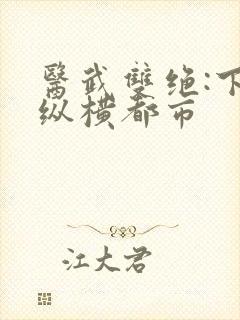 醫武雙绝:下
纵横都市
江大君